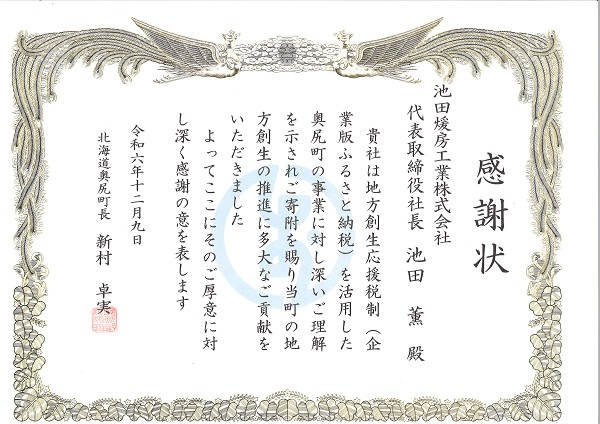 感謝状
池田煖房工業株式会社
代表取締役社長 池田 薫 殿
貴社は地方創生応援税制（企
業版ふるさと納税）を活用した
奥尻町の事業に対し深いご理解
を示されご寄附を賜り当町の地
方創生の推進に多大なご貢献を
いただきました
よってここにそのご厚意に対
し深く感謝の意を表します
令和六年十二月九日
北海道奥尻町長 新村 卓実